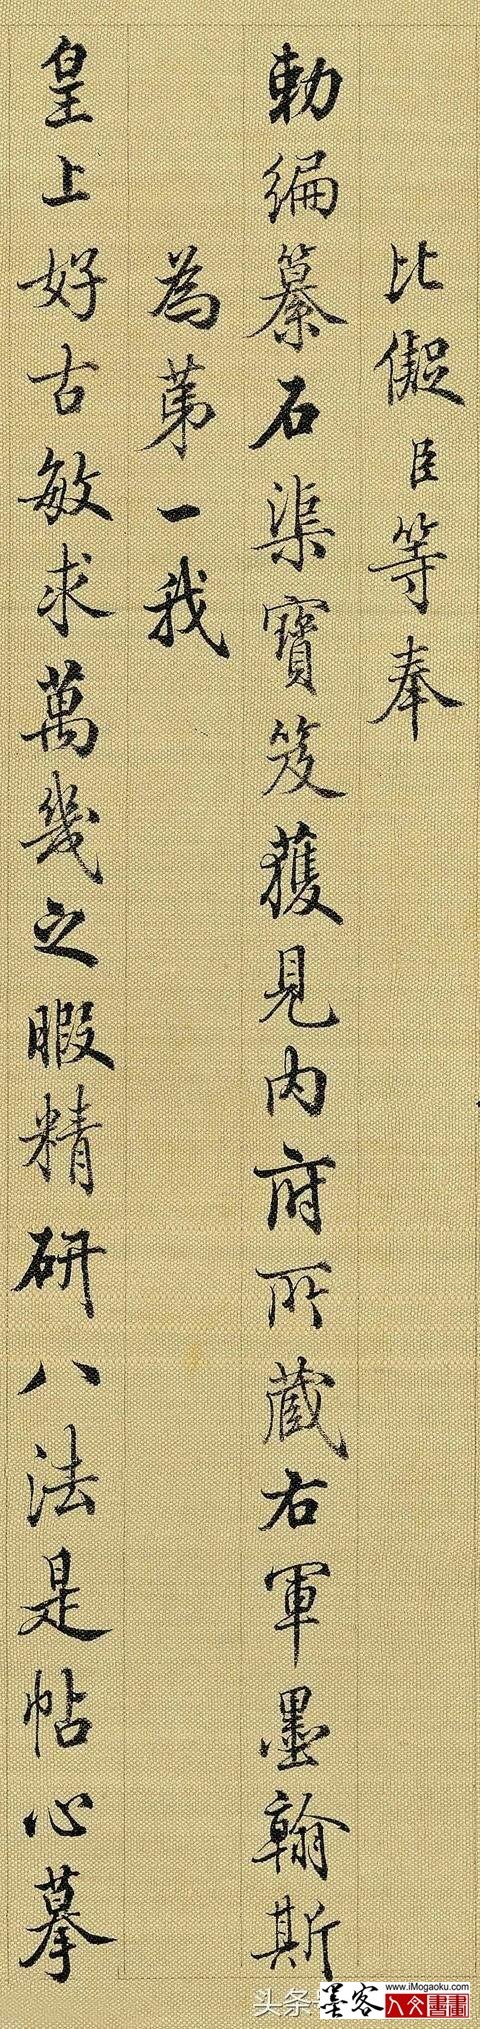 比儗臣等奉
勅編纂石渠寶笈獲見內府所藏右軍墨翰斯
為苐一我
皇上好古敏求萬幾之暇精研八法是帖心摹
头条
www.iMogaoku.com
墨客人文書畫